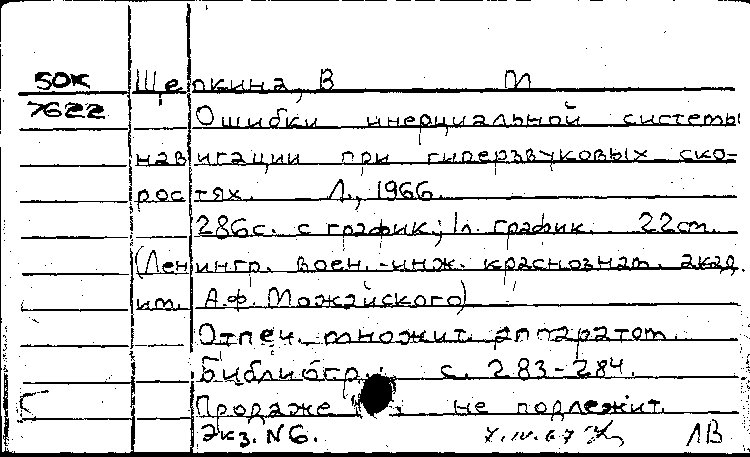 50к Щепкина, В М
7622
Ошибки инерциальной системы
навигации при гиперзвуковых ско-
ростях. Л., 1966.
286с. с график; 1л. график. 22см.
(Ленингр. воен.-инж. краснознам. акад.
им. А.Ф. Можайского)
Отпеч. множит. аппаратом.
Библиогр.: с. 283-284.
Продаже не подлежит.
Экз. N6. 7.IV.67 ЛВ